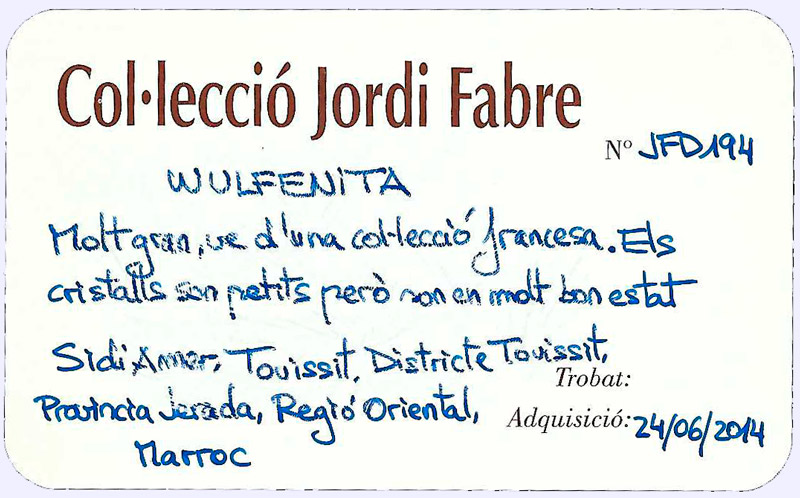 Col·lecció Jordi Fabre
Nº JFD194
WULFENITA
Molt gran, ve d'una col·lecció francesa. Els
cristalls son petits però son en molt bon estat
Sidi Amer, Touissit, Districte Touissit,
Trobat:
Província Jerada, Regió Oriental,
Adquisició: 24/06/2014
Marroc